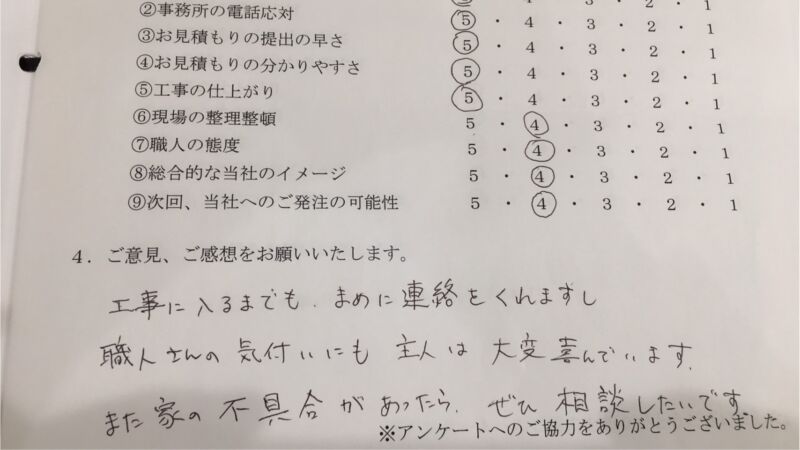 ②事務所の電話応対 5・4・3・2・1
③お見積もりの提出の早さ 5・4・3・2・1
④お見積もりの分かりやすさ 5・4・3・2・1
⑤工事の仕上がり 5・4・3・2・1
⑥現場の整理整頓 5・4・3・2・1
⑦職人の態度 5・4・3・2・1
⑧総合的な当社のイメージ 5・4・3・2・1
⑨次回、当社へのご発注の可能性 5・4・3・2・1
4．ご意見、ご感想をお願いいたします。
工事に入るまでも、まめに連絡をくれますし
職人さんの気付いにも 主人は 大変喜んでいます。
また家の不具合があったら、ぜひ相談したいです。
※アンケートへのご協力をありがとうございました。